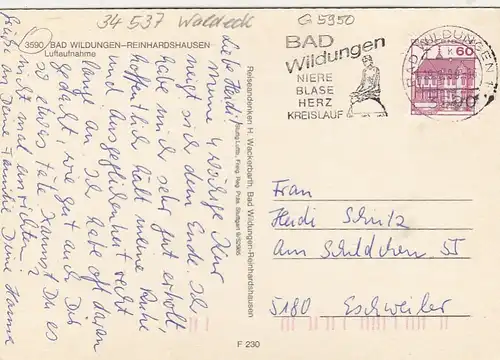 34 537 Waldeck
G 5950
3590 BAD WILDUNGEN-REINHARDSHAUSEN
Luftaufnahme
Liebe Heidi!
Meine 4 wöchige Kur
neigt sich dem Ende. Ich
habe mich sehr gut erholt,
hoffentlich hält meine Ruhe
und Ausgeglichenheit recht
lange an. Ich habe oft daran
gedacht, wie gut auch Dir
so etwas täte. Kannst Du es
nicht mal einrichten?
Grüße an Deine Familie Deine Hanna
Reiseandenken H. Wackerbarth, Bad Wildungen-Reinhardshausen
F 230
BAD
Wildungen
NIERE
BLASE
HERZ
KREISLAUF
BAD WILDUNGEN 1
60
Frau
Heidi Schulz
Am Schildchen 55
5180 Eschweiler